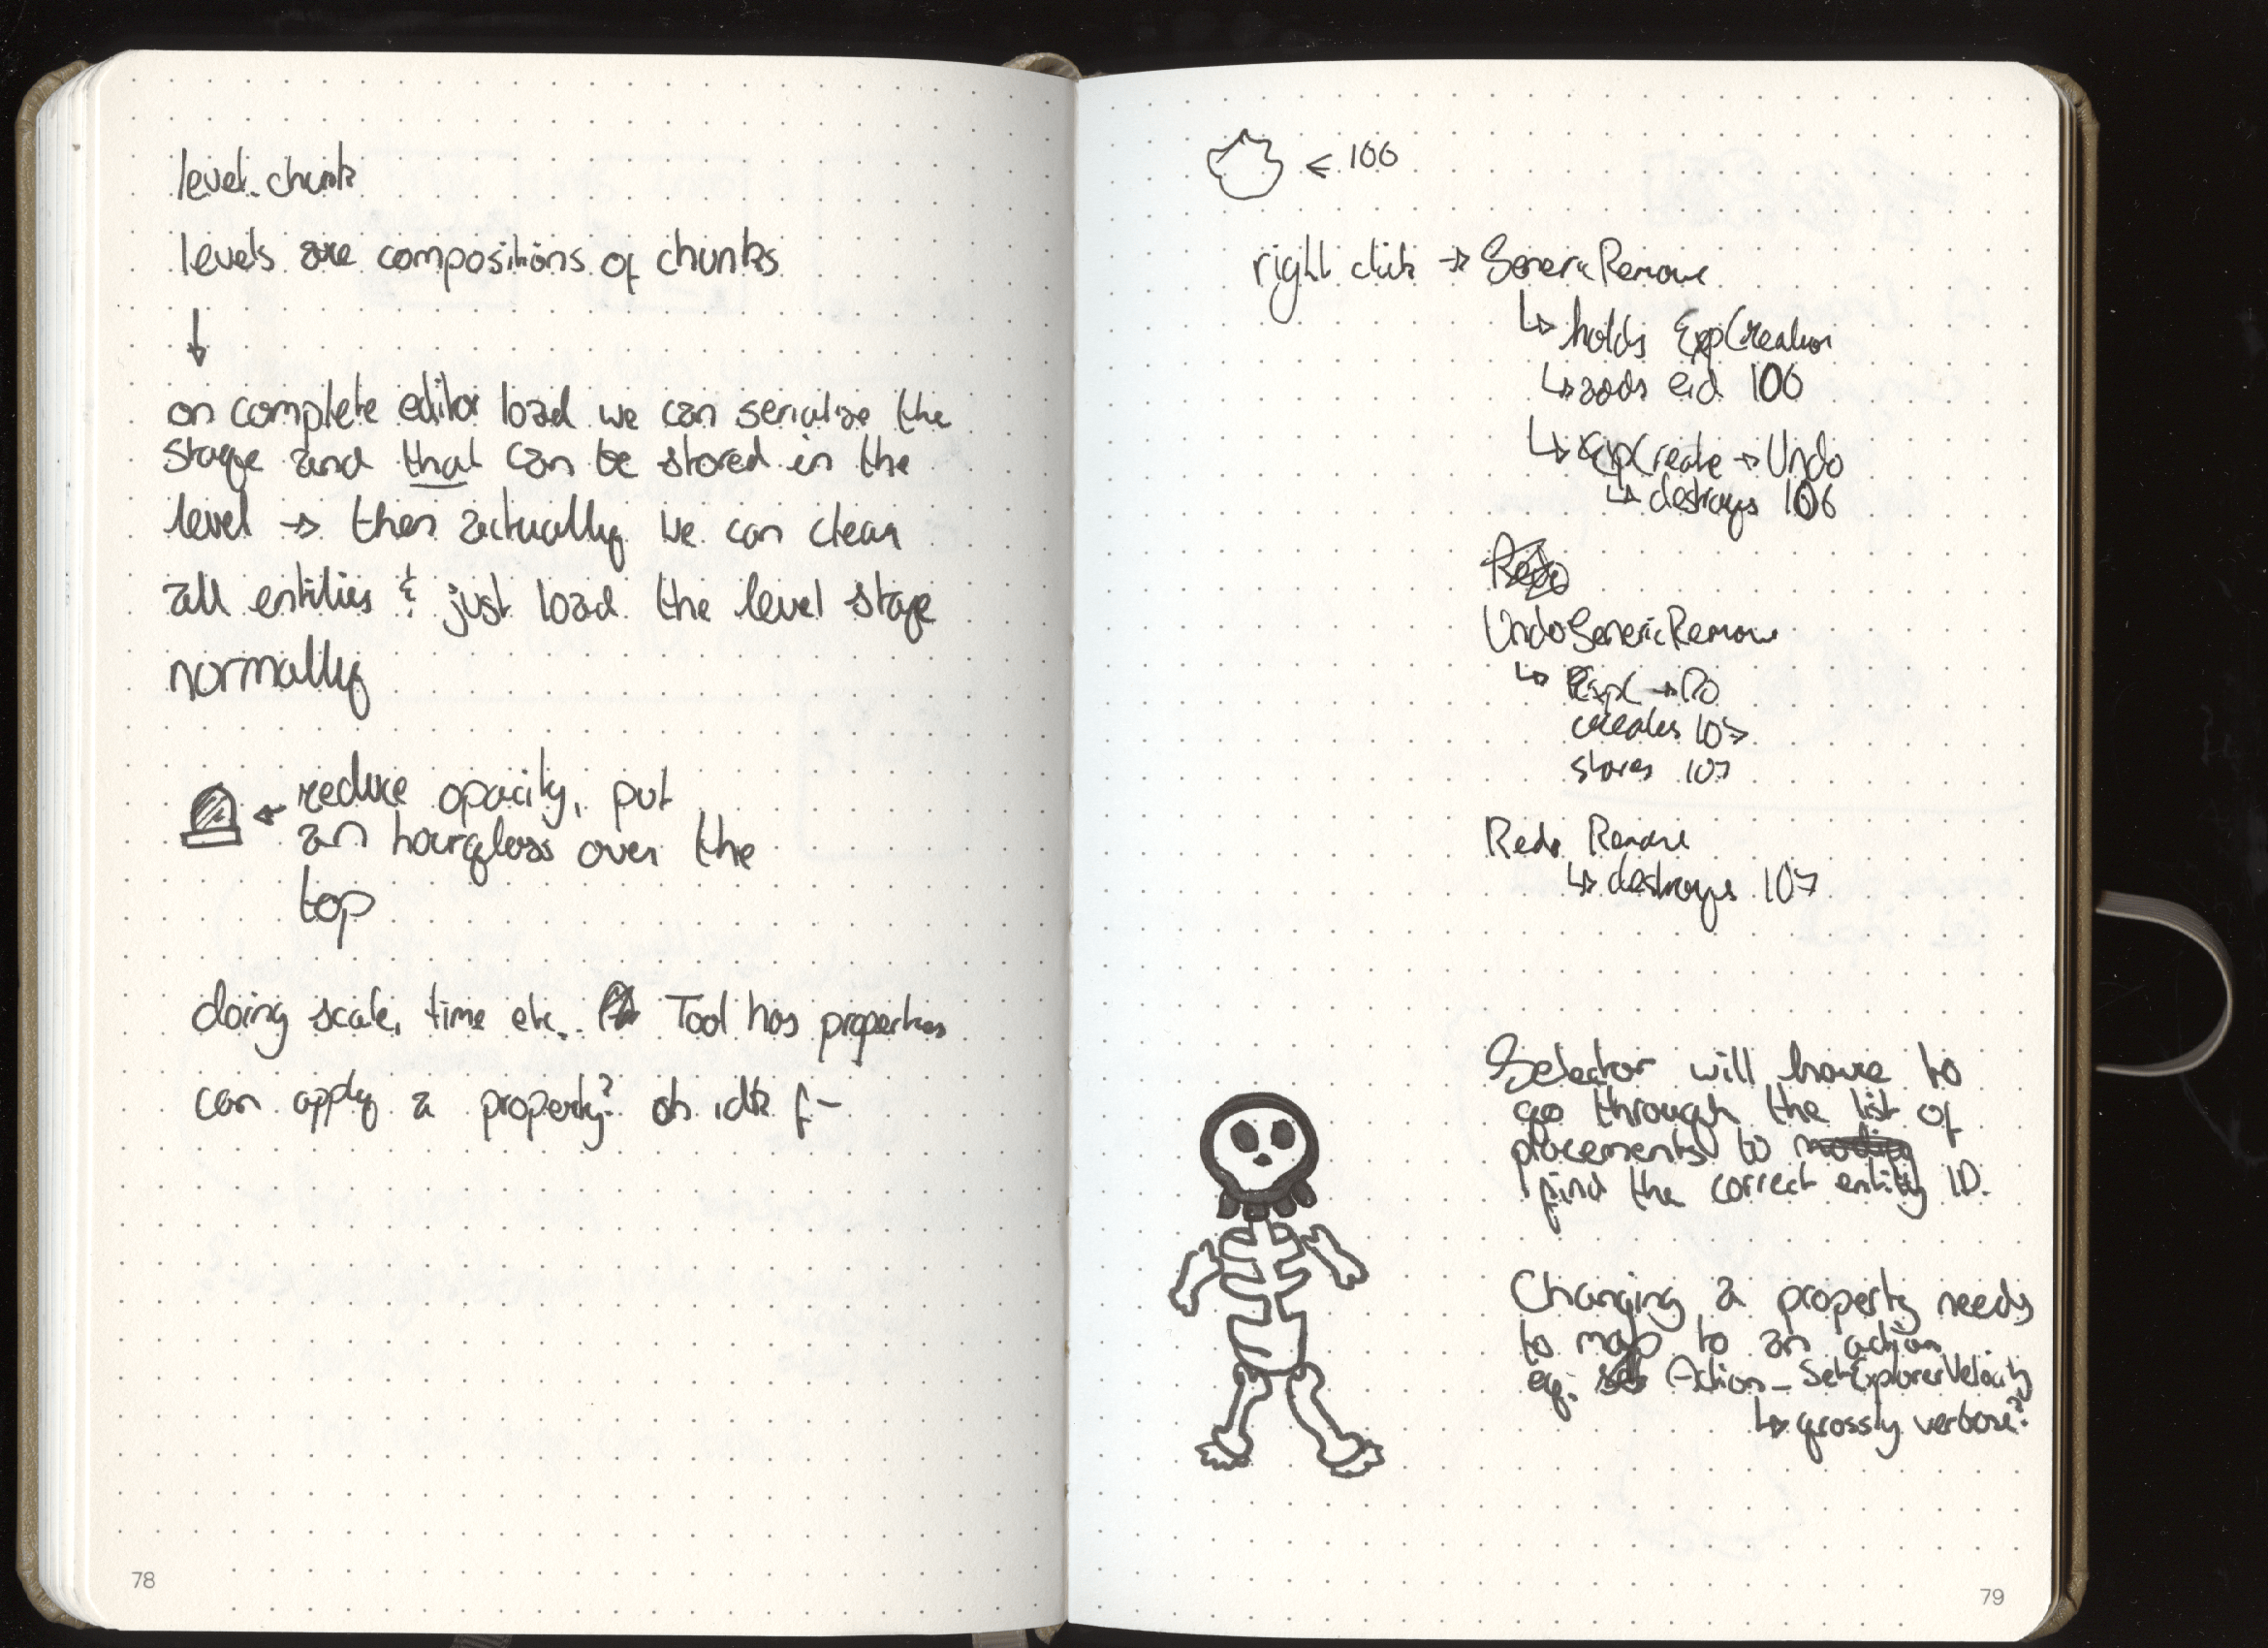 level chunk
levels are compositions of chunks
on complete editor load we can serialize the
stage and that can be stored in the
level → then actually we can clear
all entities & just load the level stage
normally
← reduce opacity, put
an hourglass over the
top
doing scale, time etc. Tool has properties
can apply a property? oh idk f-
78
← 106
right click → GenericRemove
↳ holds ExpCreation
↳ adds eid 106
↳ ExpCreate → Undo
↳ destroys 106
Redo
UndoGenericRemove
↳ ExpC → Do
creates 107
stores 107
Redo Remove
↳ destroys 107
Selector will have to
go through the list of
placements to modify
find the correct entity ID.
Changing a property needs
to map to an action
eg: Action_SetExplorerVelocity
↳ grossly verbose?
79